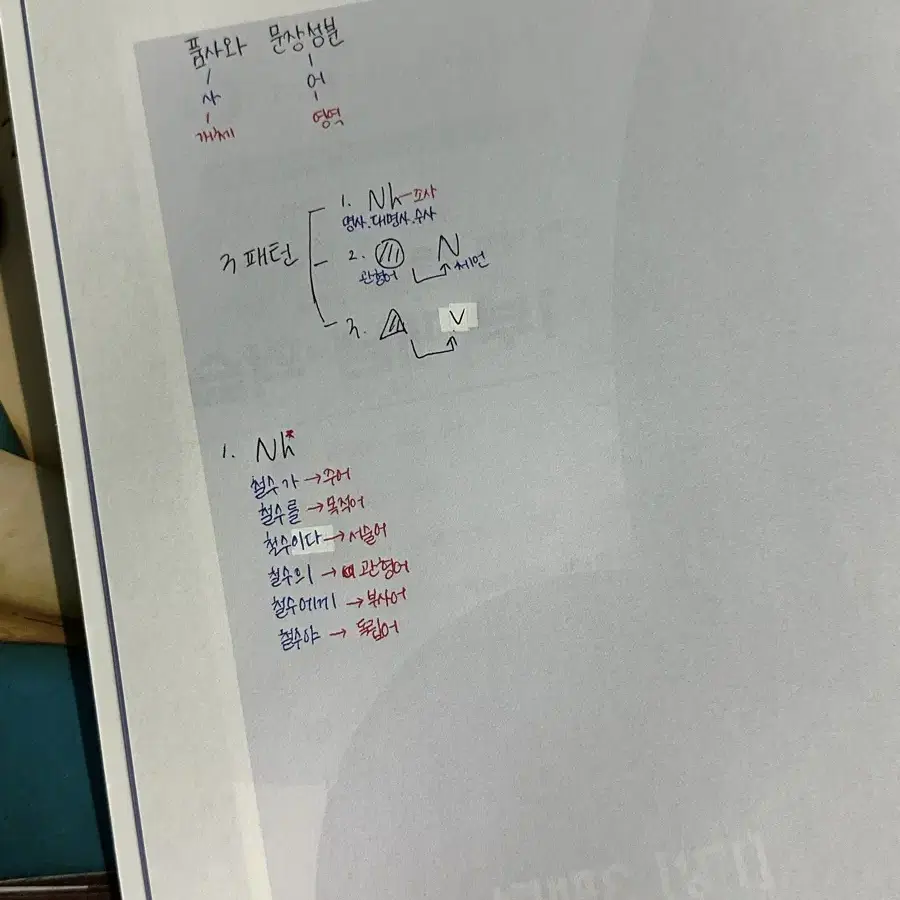 품사와 문장성분
사 어
개체 영역
3 패턴
1. Nh 조사
명사.대명사.수사
2. N
관형어 체언
3. V
1. Nh*
철수가 → 주어
철수를 → 목적어
철수이다 → 서술어
철수의 → 관형어
철수에게 → 부사어
철수야 → 독립어